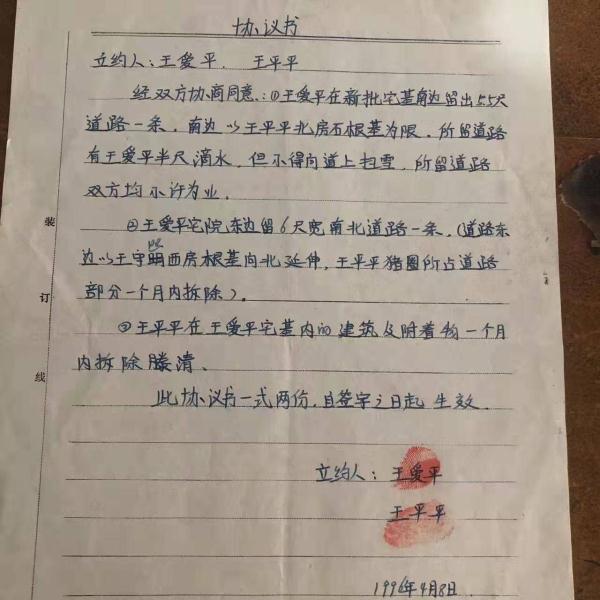 协议书
立约人:王爱平. 王平平
经双方协商同意:①王爱平在新批宅基南边留出5.5尺
道路一条,南边以王平平北房石根基为限,所留道路
有王爱平半尺滴水,但不得向道上扫雪,所留道路
双方均不许为业.
②王爱平宅院东边留6尺宽南北道路一条.(道路东
边以王守明西房根基向北延伸,王平平猪圈所占道路
部分一个月内拆除)。
③王平平在王爱平宅基内的建筑及附着物一个月
内拆除滕清、
此协议书一式两份,自签字之日起生效.
立约人:王爱平
王平平
1996年4月8日.
装
订
线